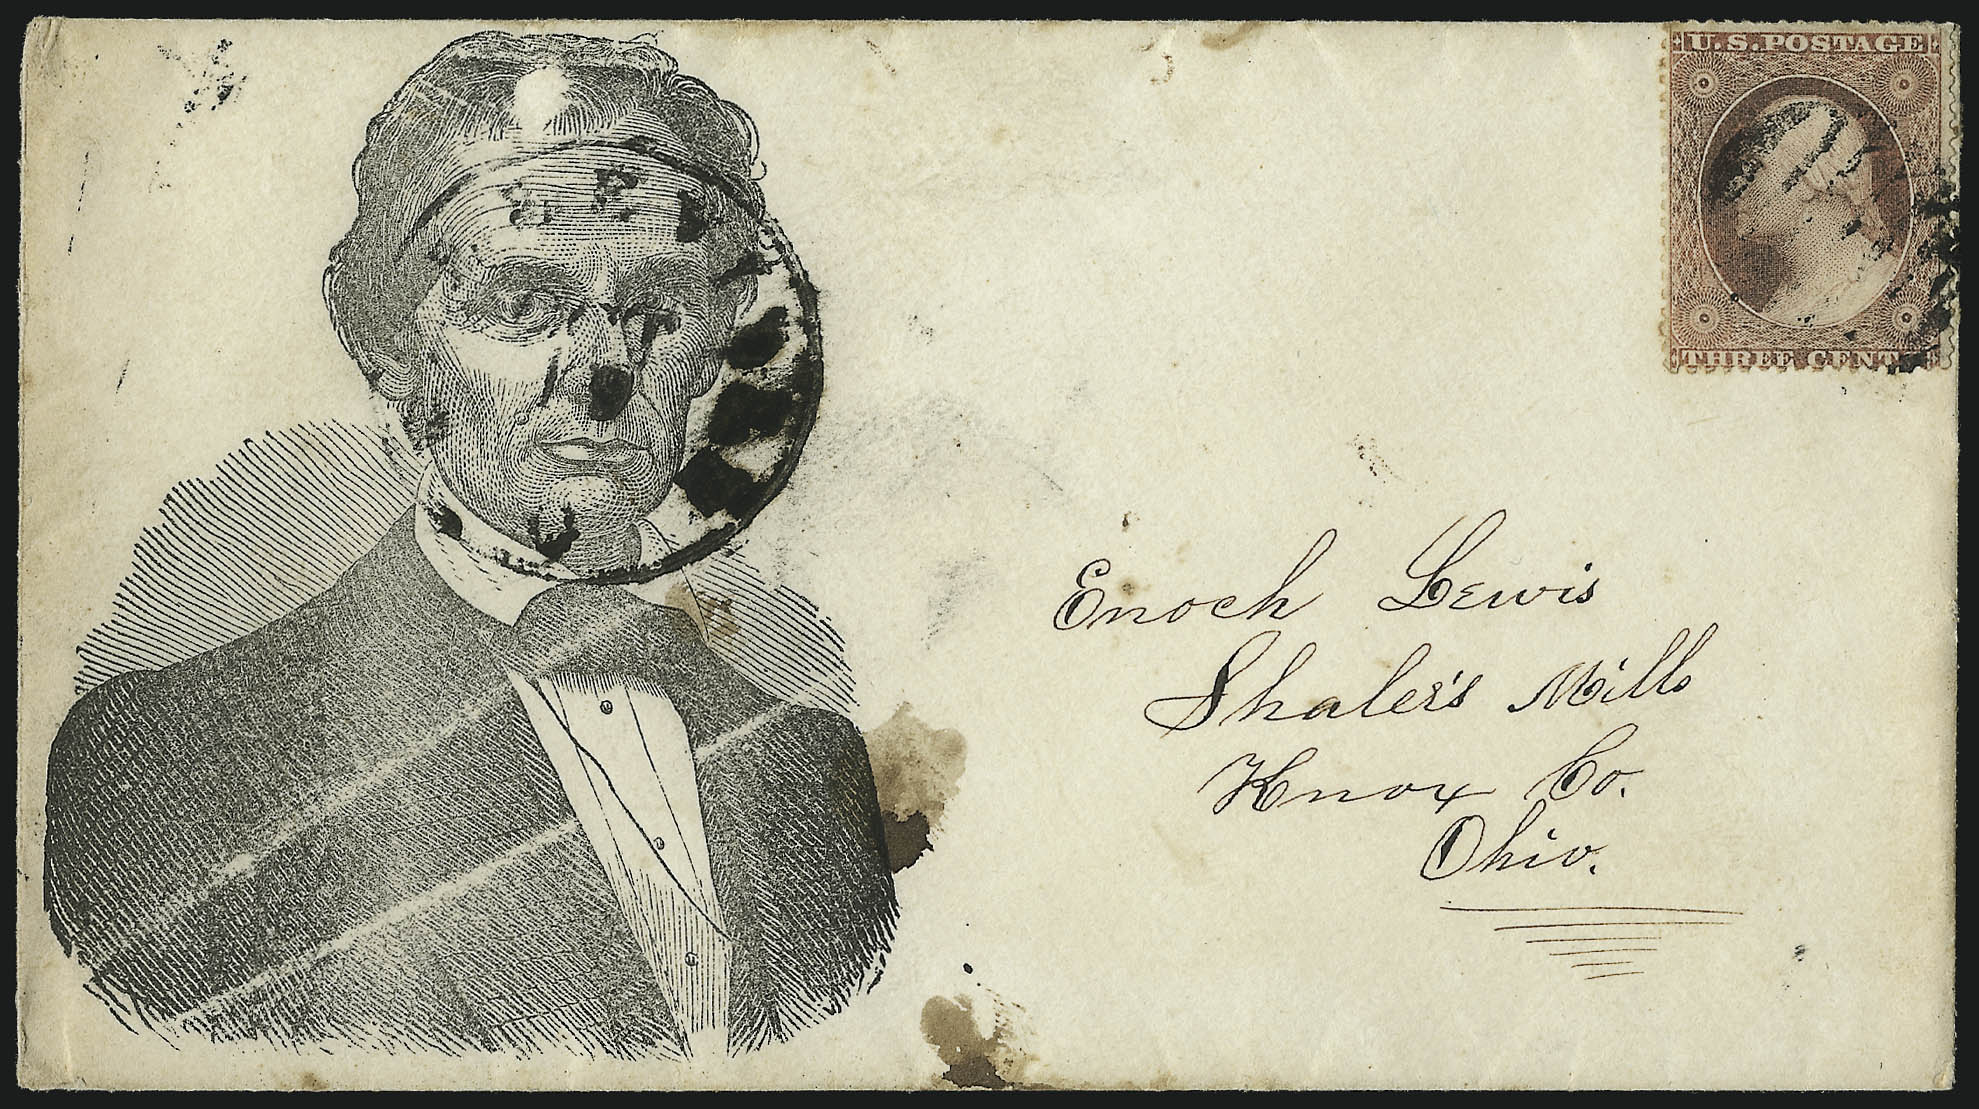 U.S. POSTAGE
THREE CENTS
Enoch Lewis
Shaler's Mills
Knox Co.
Ohio.